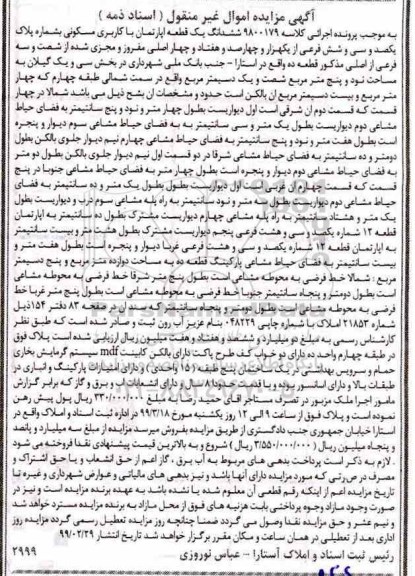 آگهی مزایده اموال غیر منقول ( اسناد ذمه )
به موجب پرونده اجرائی کلاسه ۹۸۰۰۱۷۹ ششدانگ یک قطعه آپارتمان با کاربری مسکونی شماره پلاک
یکصد و سی و شش فرعی از یکهزار و چهارصد و هفتاد و چهار اصلی مفروز و مجزی شده از شصت و سه
فرعی از اصلی مذکور قطعه ده واقع در آستارا – جنب بانک ملی شهرداری در بخش سی و یک گیلان به
مساحت نود و پنج متر مربع شصت و یک دسیمتر مربع واقع در سمت شمالی طبقه چهارم که چهار
متر مربع و بیست دسیمتر مربع آن بالکن است حدود و مشخصات آن بشرح ذیل می باشد شمالا در چهار
قسمت که قسمت دوم آن شرقی است اول دیواریست بطول چهار متر و نود و پنج سانتیمتر به فضای حیاط
مشاعی دوم دیواریست بطول یک متر و سی سانتیمتر به به فضای حیاط مشاعی سوم دیوار و پنجره
است بطول هفت متر و نود و پنج سانتیمتر به فضای حیاط مشاعی چهارم نیم دیوار جلوی بالکن بطول
دومتر و ده سانتیمتر به فضای حیاط مشاعی شرقا در دو قسمت اول نیم دیوار جلوی بالکن بطول دو متر
به فضای حیاط مشاعی دوم دیوار و پنجره است بطول چهار متر به فضای حیاط مشاعی جنوبا در پنج
قسمت که قسمت چهارم آن غربی است اول دیواریست بطول یک متر و ده سانتیمتر به فضای
حیاط مشاعی دوم دیواریست بطول سه متر و نود سانتیمتر به راه پله مشاعی سوم درب و دیواریست بطول
یک متر و هشتاد سانتیمتر به راه پله مشاعی چهارم دیواریست مشترک بطول ده سانتیمتر به آپارتمان
قطعه ۱۲ شماره یکصد و سی و هشت فرعی پنجم دیواریست مشترک بطول هشت متر و بیست سانتیمتر
به آپارتمان قطعه ۱۲ شماره یکصد و سی و هشت فرعی غربا دیوار و پنجره است بطول هفت متر و
بیست سانتیمتر به فضای حیاط مشاعی پارکینگ قطعه ده به مساحت دوازده متر مربع و پنج دسیمتر
مربع : شمالا خط فرضی به محوطه مشاعی است بطول پنج متر شرقا خط فرضی به محوطه مشاعی
است بطول دومتر و پنجاه سانتیمتر جنوبا خط فرضی به محوطه مشاعی است بطول پنج متر غربا خط
فرضی به محوطه مشاعی است بطول دومتر و پنجاه سانتیمتر که سند در صفحه ۸۳ دفتر ۱۵۴ ذیل
شماره ۲۱۸۵۳ املاک با شماره چاپی ۰۴۸۲۲۹ بنام عزیز آب رون ثبت و صادر شده است که طبق نظر
کارشناس رسمی به مبلغ دو میلیارد و ششصد و هفتاد و هفت میلیون ریال ارزیابی شده است پلاک فوق
در طبقه چهارم واحد ده دارای دو خواب کف طرح پارکت دارای بالکن کابینت mdf سیستم گرمایش بخاری
حمام و سرویس بهداشتی در ساختمان پنج طبقه (۱۵ واحدی) و دارای امتیازات پارکینگ و انباری در
طبقات بالا و دارای آسانسور بوده و با قدمت حدودا ۸ سال و دارای انشعابات آب و برق و گاز که برابر گزارش
مامور اجرا ملک مزبور در تصرف مستاجر آقای حمید زاهد به مبلغ ۲۳۰/۰۰۰/۰۰۰ ریال پول پیش رهن
نموده است و پلاک فوق از ساعت ۹ الی ۱۲ روز یکشنبه مورخ ۹۹/۳/۱۸ در اداره ثبت اسناد و املاک واقع در
آستارا خیابان جمهوری جنب دادگستری از طریق مزایده بفروش میرسد مزایده از مبلغ سه میلیارد و پانصد
و پنجاه میلیون ریال ( ۳/۵۵۰/۰۰۰/۰۰۰ ریال ) شروع و به بالاترین قیمت پیشنهادی نقدا فروخته می شود
. لازم به ذکر است پرداخت بدهی های مربوط به آب برق ، گاز اعم از حق انشعاب و یا حق اشتراک و
مصرف در صورتی که مورد مزایده دارای آنها باشد و نیز بدهی های مالیاتی و عوارض شهرداری و غیره تا
تاریخ مزایده اعم از اینکه رقم قطعی آن معلوم شده یا نشده باشد به عهده برنده مزایده است و نیز در
صورت وجود مازاد وجوه پرداختی بابت هزینه های فوق از محل مازاد به برنده مزایده مسترد خواهد شد
و نیم عشر و حق مزایده نقدا وصول می گردد ضمنا چنانچه روز مزایده تعطیل رسمی گردد مزایده روز
اداری بعد از تعطیلی در همان ساعت و مکان مقرر برگزار خواهد شد تاریخ انتشار ۹۹/۰۲/۲۹
رئیس ثبت اسناد و املاک آستارا – عباس نوروزی ۲۹۹۹